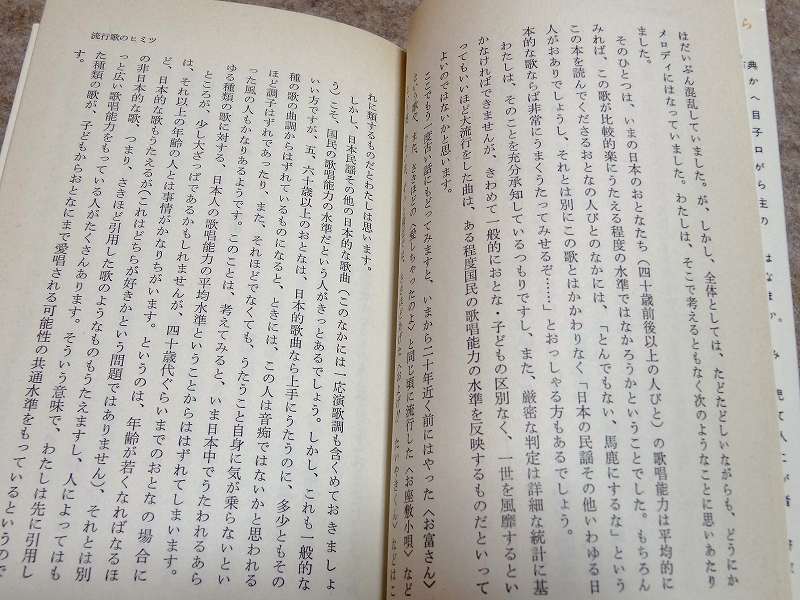 はだいぶん混乱していました。が、しかし、全体としては、たどたどしいながらも、どうにか
メロディにはなっていました。わたしは、そこで考えるともなく次のようなことに思いあたり
ました。
そのひとつは、いまの日本のおとなたち（四十歳前後以上の人びと）の歌唱能力は平均的に
みれば、この歌が比較的楽にうたえる程度の水準ではなかろうかということでした。もちろん
この本を読んでくださるおとなの人びとのなかには、「とんでもない、馬鹿にするな」という
人がおありでしょうし、それとは別にこの歌とはかかわりなく「日本の民謡その他いわゆる日
本的な歌ならば非常にうまくうたってみせるぞ……」とおっしゃる方もあるでしょう。
わたしは、そのことを充分承知しているつもりですし、また、厳密な判定は詳細な統計に基
かなければできませんが、きわめて一般的におとな・子どもの区別なく、一世を風靡するとい
ってもいいほど大流行をした曲は、ある程度国民の歌唱能力の水準を反映するものだといって
よいのではないかと思います。
ここでもう一度古い話にもどってみますと、いまから二十年近く前にはやった〈お富さん〉
という歌、また、さきほどの〈愛しちゃったのよ〉と同じ頃に流行した〈お座敷小唄〉
たいやきくん〉などはこ
流行歌のヒミツ
れに類するものだとわたしは思います。
しかし、日本民謡その他の日本的な歌曲（このなかには一応演歌調も含くめておきましょ
う）こそ、国民の歌唱能力の水準だという人がきっとあるでしょう。しかし、これも一般的な
いい方ですが、五、六十歳以上のおとなは、日本的歌曲なら上手にうたうのに、多少ともその
種の歌の曲調からはずれているものになると、ときには、この人は音痴ではないかと思われる
ほど調子はずれであったり、また、それほどでなくても、うたうこと自身に気が乗らないとい
った風の人もかなりあるようです。このことは、考えてみると、いま日本中でうたわれるあら
ゆる種類の歌に対する、日本人の歌唱能力の平均水準ということからはずれてしまいます。
ところが、少し大ざっぱであるかもしれませんが、四十歳代ぐらいまでのおとなの場合に
は、それ以上の年齢の人とは事情がかなりちがいます。というのは、年齢が若くなればなるほ
ど、日本的な歌もうたえるが（これはどちらが好きかという問題ではありません）、それとは別
の非日本的な歌、つまり、さきほど引用した歌のようなものもうたえますし、人によってはも
っと広い歌唱能力をもっている人がたくさんあります。そういう意味で、わたしは先に引用し
た種類の歌が、子どもからおとなにまで愛唱される可能性の共通水準をもっているというので
す。